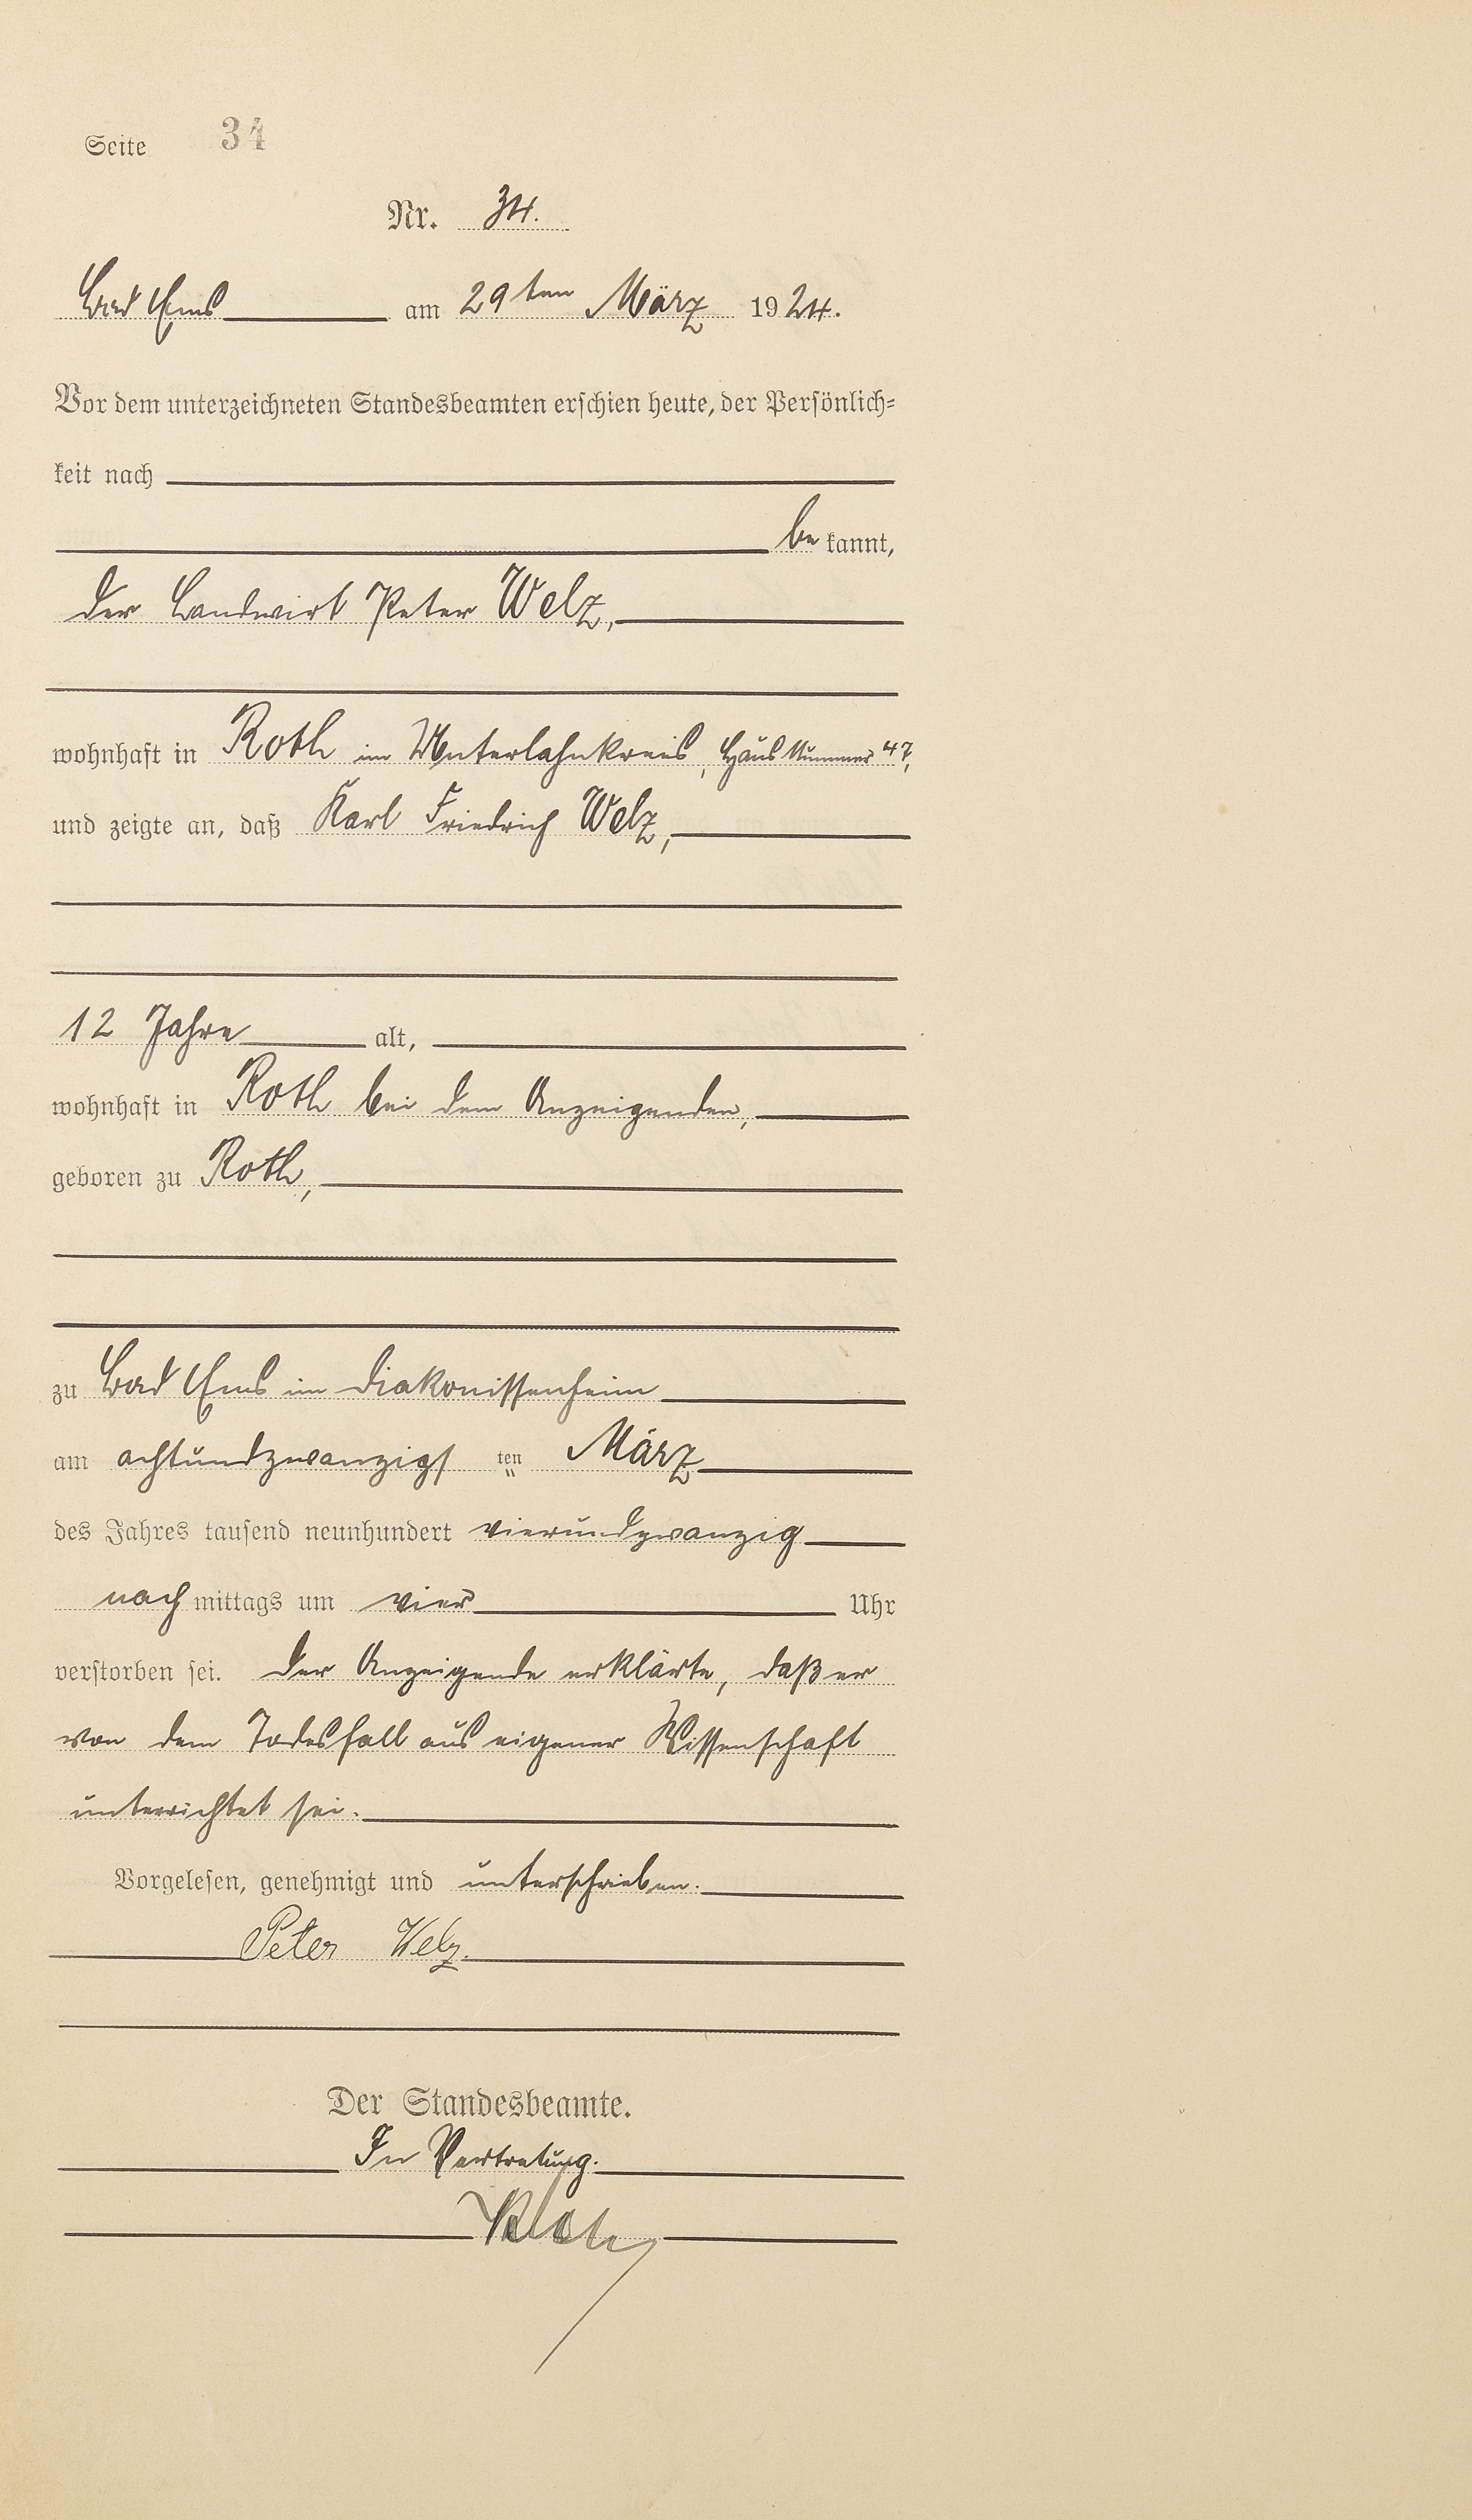 Seite 34
Nr. 34.
Bad Ems am 29ten März 1924.
Vor dem unterzeichneten Standesbeamten erschien heute, der Persönlich-
keit nach
be kannt,
der Landwirt Peter Welz,
wohnhaft in Roth im Unterlahnkreis, Haus Nummer 47,
und zeigte an, daß Karl Friedrich Welz,
12 Jahre alt,
wohnhaft in Roth bei dem Anzeigenden,
geboren zu Roth,
zu Bad Ems im Diakonissenheim
am achtundzwanzigs ten März
des Jahres tausend neunhundert vierundzwanzig
nachmittags um vier Uhr
verstorben sei. Der Anzeigende erklärte, daß er
von dem Todesfall aus eigener Wissenschaft
unterrichtet sei.
Vorgelesen, genehmigt und unterschrieben.
Peter Welz.
Der Standesbeamte.
In Vertretung.